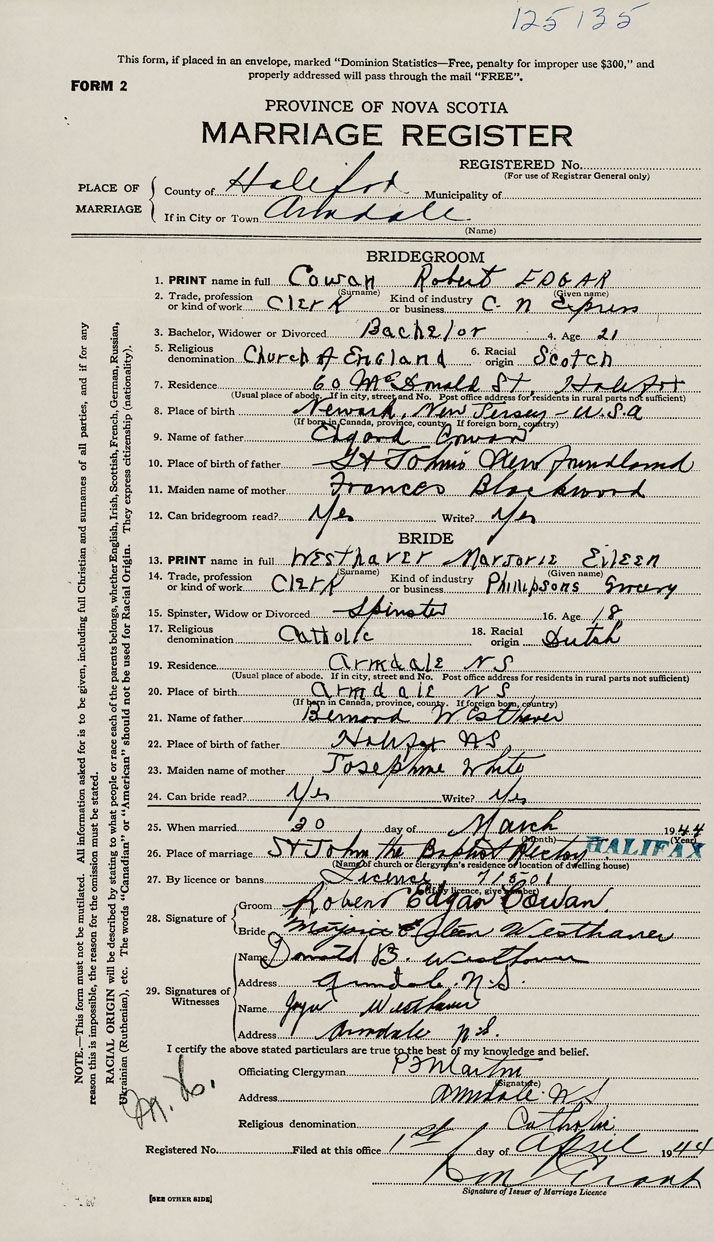 125135
This form, if placed in an envelope, marked "Dominion Statistics—Free, penalty for improper use $300," and
properly addressed will pass through the mail "FREE".
FORM 2
PROVINCE OF NOVA SCOTIA
MARRIAGE REGISTER
REGISTERED No.
(For use of Registrar General only)
PLACE OF MARRIAGE
County of Halifax Municipality of
If in City or Town Armdale
(Name)
BRIDEGROOM
1. PRINT name in full Cowan Robert EDGAR
(Surname) (Given name)
2. Trade, profession or kind of work Clerk Kind of industry or business C. N Express
3. Bachelor, Widower or Divorced Bachelor 4. Age 21
5. Religious denomination Church of England 6. Racial origin Scotch
7. Residence 60 McDonald St, Halifax
(Usual place of abode. If in city, street and No. Post office address for residents in rural parts not sufficient)
8. Place of birth Newark, New Jersey - U.S.A
(If born in Canada, province, county. If foreign born, country)
9. Name of father Edgard Cowan
10. Place of birth of father St John's Newfoundland
11. Maiden name of mother Frances Blackwood
12. Can bridegroom read? Yes Write? Yes
BRIDE
13. PRINT name in full Westhaver Marjorie Eileen
(Surname) (Given name)
14. Trade, profession or kind of work Clerk Kind of industry or business Phillipsons Grocery
15. Spinster, Widow or Divorced Spinster 16. Age 18
17. Religious denomination Catholic 18. Racial origin Dutch
19. Residence Armdale N S
(Usual place of abode. If in city, street and No. Post office address for residents in rural parts not sufficient)
20. Place of birth Armdale N S
(If born in Canada, province, county. If foreign born, country)
21. Name of father Bernard Westhaver
22. Place of birth of father Halifax NS
23. Maiden name of mother Josephine White
24. Can bride read? Yes Write? Yes
25. When married 30 day of March 1944
(Month) (Year)
26. Place of marriage St John the Baptist Rectory HALIFAX
(Name of church or clergyman's residence or location of dwelling house)
27. By licence or banns License 71501
(If by licence, give number)
28. Signature of
Groom Robert Edgar Cowan
Bride Marjorie Eileen Westhaver
29. Signatures of Witnesses
Name Donald B. Westhaver
Address Armdale N.S.
Name Joyce Westhaver
Address Armdale N.S.
I certify the above stated particulars are true to the best of my knowledge and belief.
Officiating Clergyman P J Martin
(Signature)
Address Armdale N S
Religious denomination Catholic
Registered No. Filed at this office 1st day of April 1944
Grant
Signature of Issuer of Marriage Licence
[SEE OTHER SIDE]
NOTE.—This form must not be mutilated. All information asked for is to be given, including full Christian and surnames of all parties, and if for any
reason this is impossible, the reason for the omission must be stated.
RACIAL ORIGIN will be described by stating to what people or race each of the parents belongs, whether English, Irish, Scottish, French, German, Russian,
Ukrainian (Ruthenian), etc. The words "Canadian" or "American" should not be used for Racial Origin. They express citizenship (nationality).